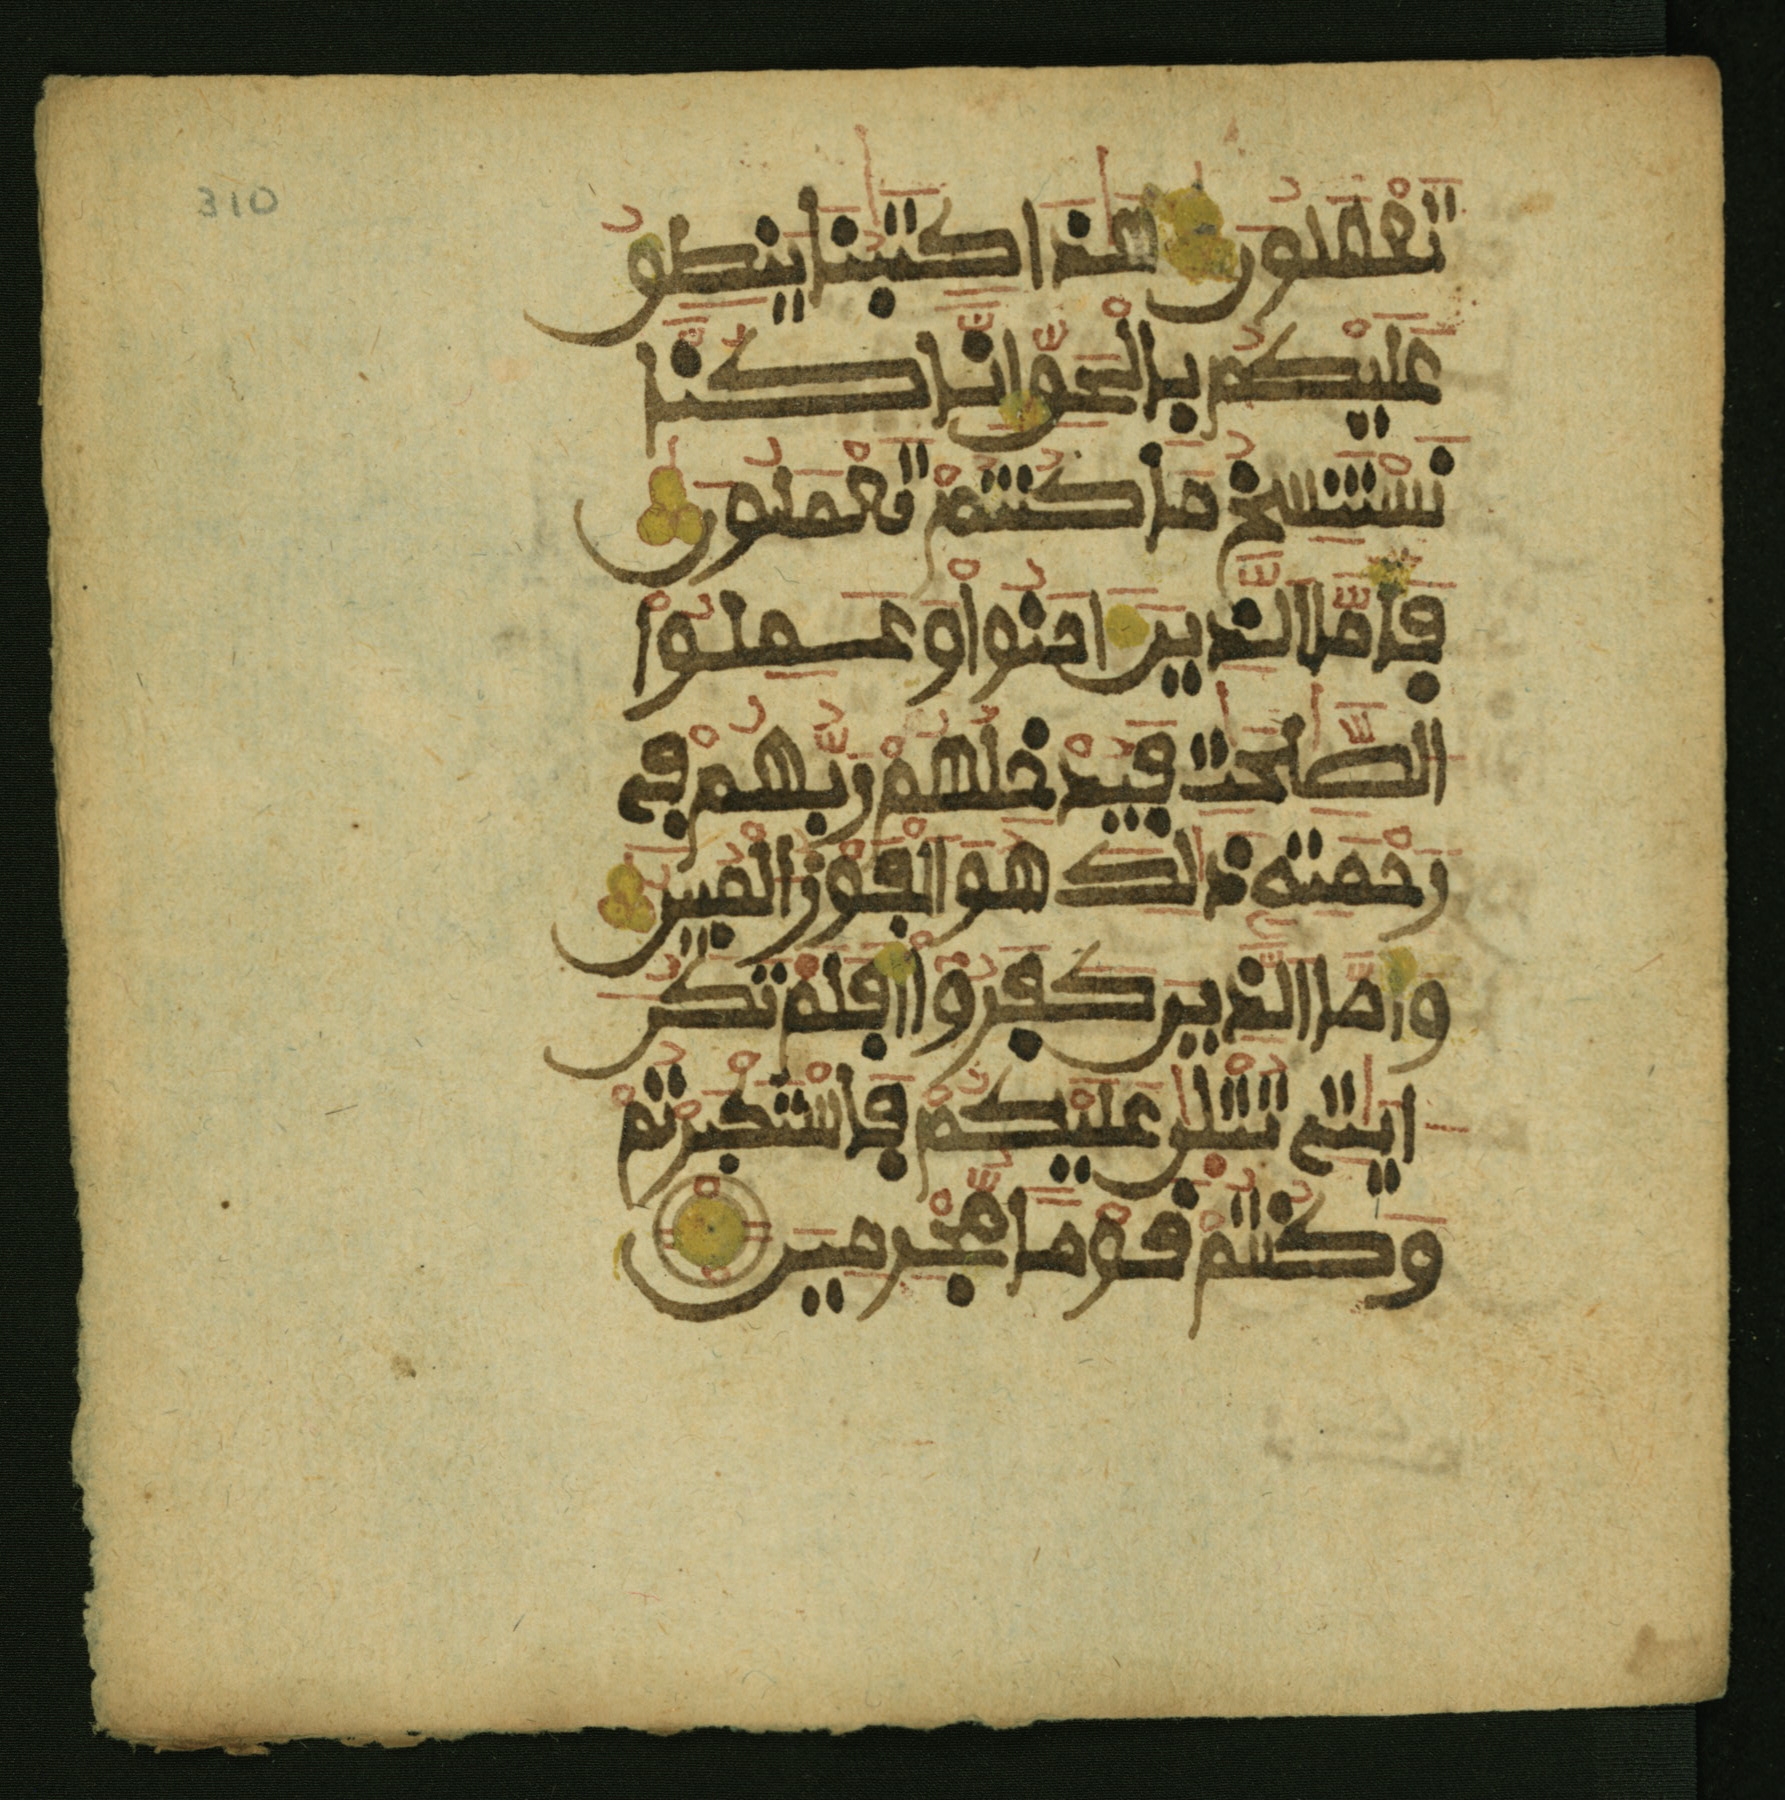 310
تَعْمَلُونَ هَٰذَا كِتَٰبُنَا يَنطِقُ
عَلَيْكُم بِالْحَقِّ إِنَّا كُنَّا
نَسْتَنسِخُ مَا كُنتُمْ تَعْمَلُونَ
فَأَمَّا الَّذِينَ ءَامَنُواْ وَعَمِلُواْ
الصَّٰلِحَٰتِ فَيُدْخِلُهُمْ رَبُّهُمْ فِي
رَحْمَتِهِ ذَٰلِكَ هُوَ الْفَوْزُ الْمُبِينُ
وَأَمَّا الَّذِينَ كَفَرُواْ أَفَلَمْ تَكُنْ
ءَايَٰتِي تُتْلَىٰ عَلَيْكُمْ فَاسْتَكْبَرْتُمْ
وَكُنتُمْ قَوْمًا مُّجْرِمِينَ